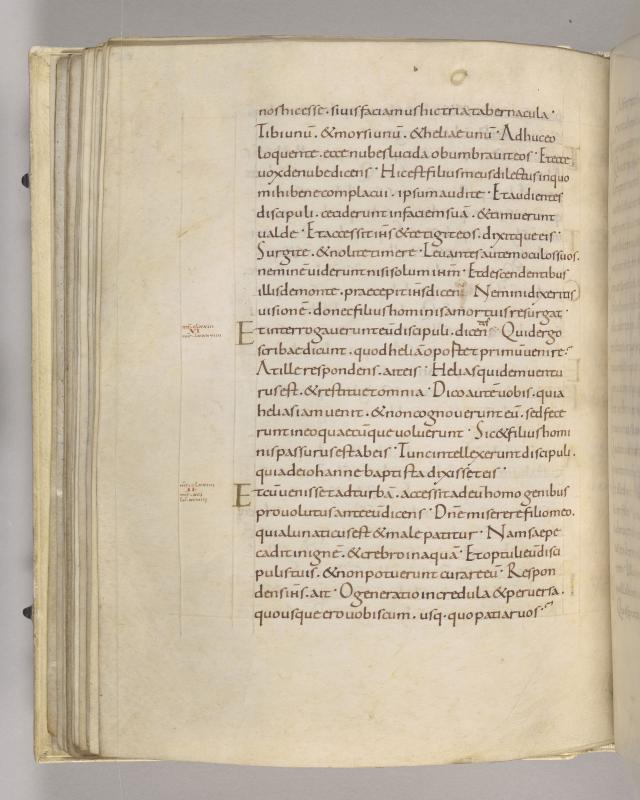 nos hic esse · si vis faciamus hic tria tabernacula ·
Tibi unū · & morsi unū · & heliae unū · Adhuc eo
loquente · ecce nubes lucida obumbravit eos · Et ecce
vox de nube dicens · Hic est filius meus dilectus in quo
mihi bene complacui · ipsum audite · Et audientes
discipuli · ceciderunt in faciem suā · & timuerunt
valde · Et accessit ihs & tetigit eos · dixitque eis ·
Surgite · & nolite timere · Levantes autem oculos suos ·
neminē viderunt nisi solum ihm · Et descendentibus
illis de monte · praecepit ihs dicens Nemini dixeritis
visionē · donec filius hominis a mortuis resurgat ·
Et interrogaverunt eū discipuli · dicentes · Quid ergo
scribae dicunt · quod heliā oportet primū venire ·
At ille respondens · ait eis · Helias quidem ventu
rus est · & restituet omnia · Dico autē vobis · quia
helias iam venit · & non cognoverunt eū · sed fece
runt in eo quaecūque voluerunt · Sic & filius homi
nis passurus est ab eis · Tunc intellexerunt discipuli ·
quia de iohanne baptista dixisset eis ·
Et cū venisset ad turbā · accessit ad eū homo genibus
provolutus ante eū dicens · Dne miserere filio meo ·
quia lunaticus est & male patitur · Nam saepe
cadit in ignē · & crebro in aquā · Et optuli eū disci
pulis tuis · & non potuerunt curare eū · Respon
dens ihs · ait · O generatio incredula & perversa ·
quo usque ero vobiscum · usq · quo patiar vos ·